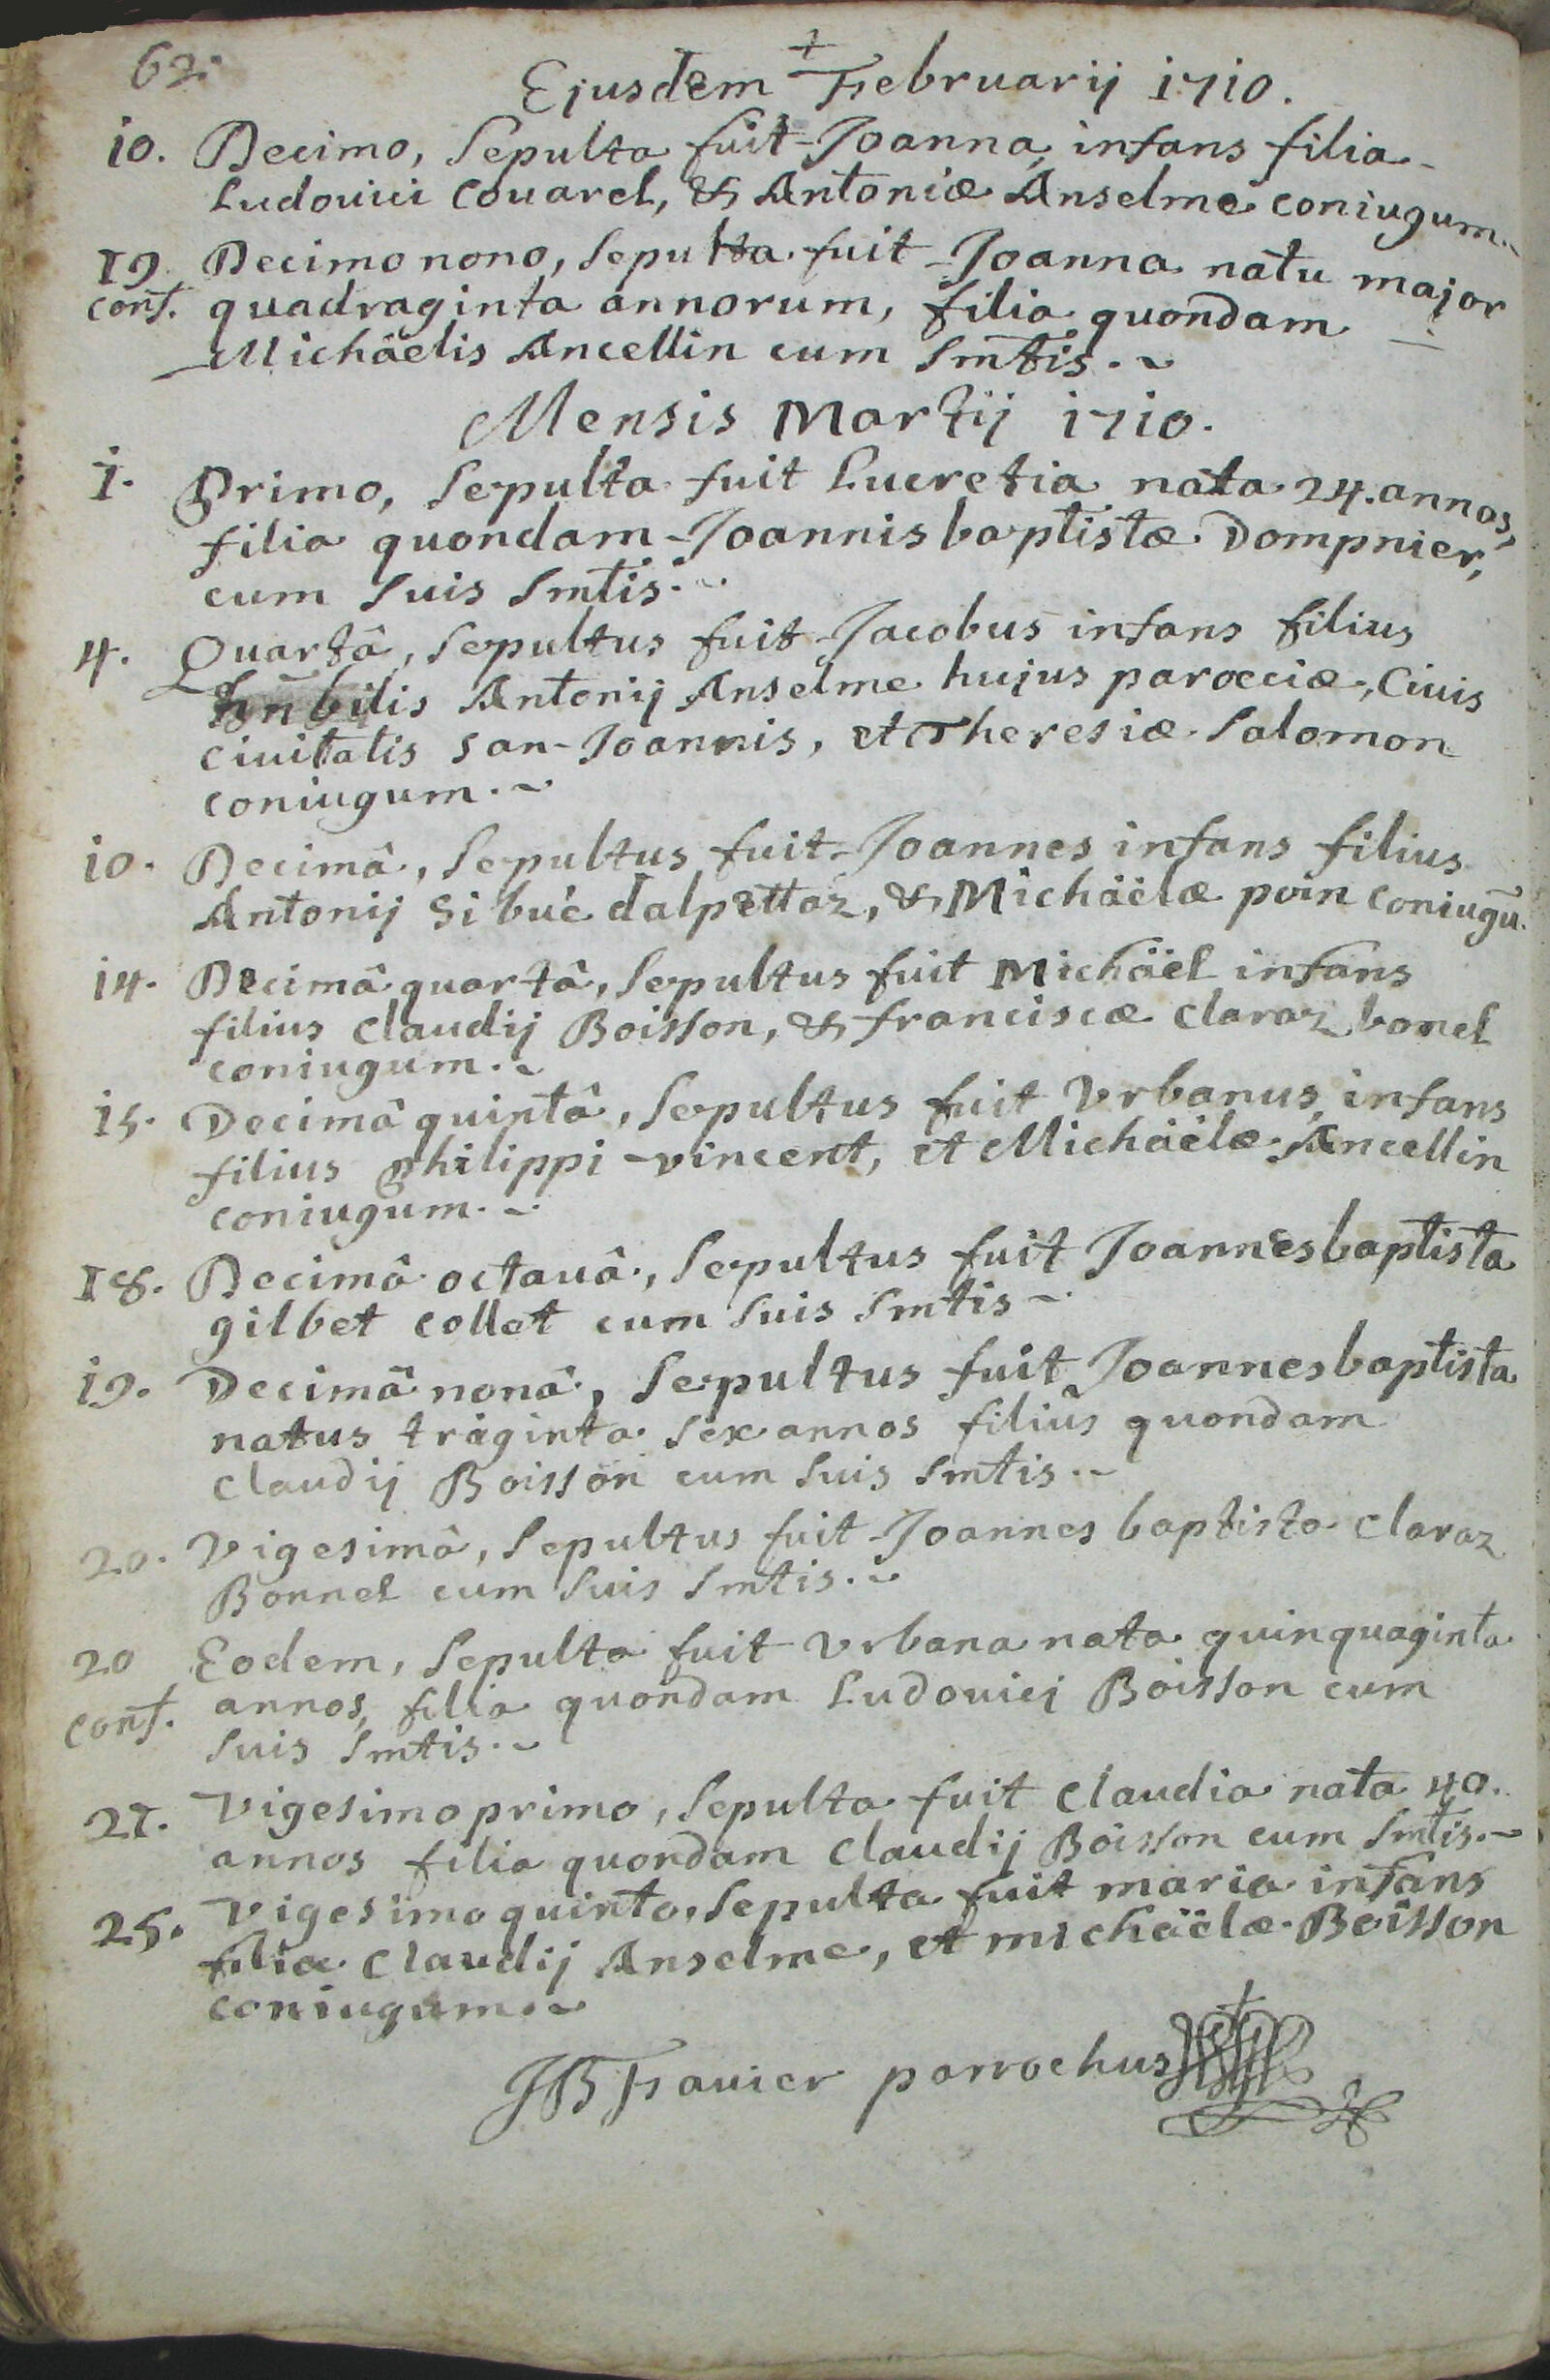 62.
Ejusdem Februarij 1710.
10. Decimo, Sepulta fuit Joanna infans filia
Ludovici Couarel, & Antoniæ Anselme coniugum.
19. Decimo nono, Sepulta fuit Joanna natu major
conf. quadraginta annorum, filia quondam
Michäelis Ancellin cum Smtis.
Mensis Martij 1710.
1. Primo, Sepulta fuit Lucretia nata 24. annos,
filia quondam Joannisbaptistæ Dompnier,
cum suis Smtis.
4. Quartâ, Sepultus fuit Jacobus infans filius
Antonij Anselme hujus parœciæ, Ciuis
ciuitatis san-Joannis, et Theresiæ Salomon
coniugum.
10. Decimâ, Sepultus fuit Joannes infans filius
Antonij Sibué dalpettaz, & Michäëlæ poin coniugũ.
14. Decimâ quartâ, Sepultus fuit Michäël infans
filius Claudij Boisson, & franciscæ Claraz bonel
coniugum.
15. Decimâ quintâ, Sepultus fuit Vrbanus infans
filius philippi vincent, et Michäëlæ Ancellin
coniugum.
18. Decimâ octauâ, Sepultus fuit Joannesbaptista
gilbet collet cum suis Smtis
19. Decimâ nonâ, Sepultus fuit Joannesbaptista
natus triginta sex annos filius quondam
Claudij Boisson cum suis Smtis.
20. Vigesimâ, Sepultus fuit Joannes baptista Claraz
Bonnel cum suis Smtis.
20 Eodem, Sepulta fuit Vrbana nata quinquaginta
conf. annos, filia quondam Ludouici Boisson cum
suis Smtis.
21. Vigesimoprimo, Sepulta fuit Claudia nata 40.
annos filia quondam Claudij Boisson cum Smtis.
25. Vigesimoquinto, Sepulta fuit maria infans
filia Claudij Anselme, et michäëlæ Boisson
coniugum.
JB Favier parrochus